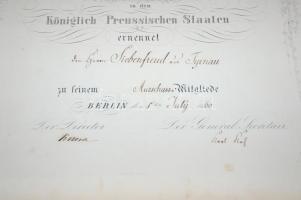 in den
Königlich Preussischen Staaten
ernennet
den Herrn Siebenfreud in Tyrnau
zu seinem Mitgliede
BERLIN den 5ten July 60
Der Director Der General-Secretair